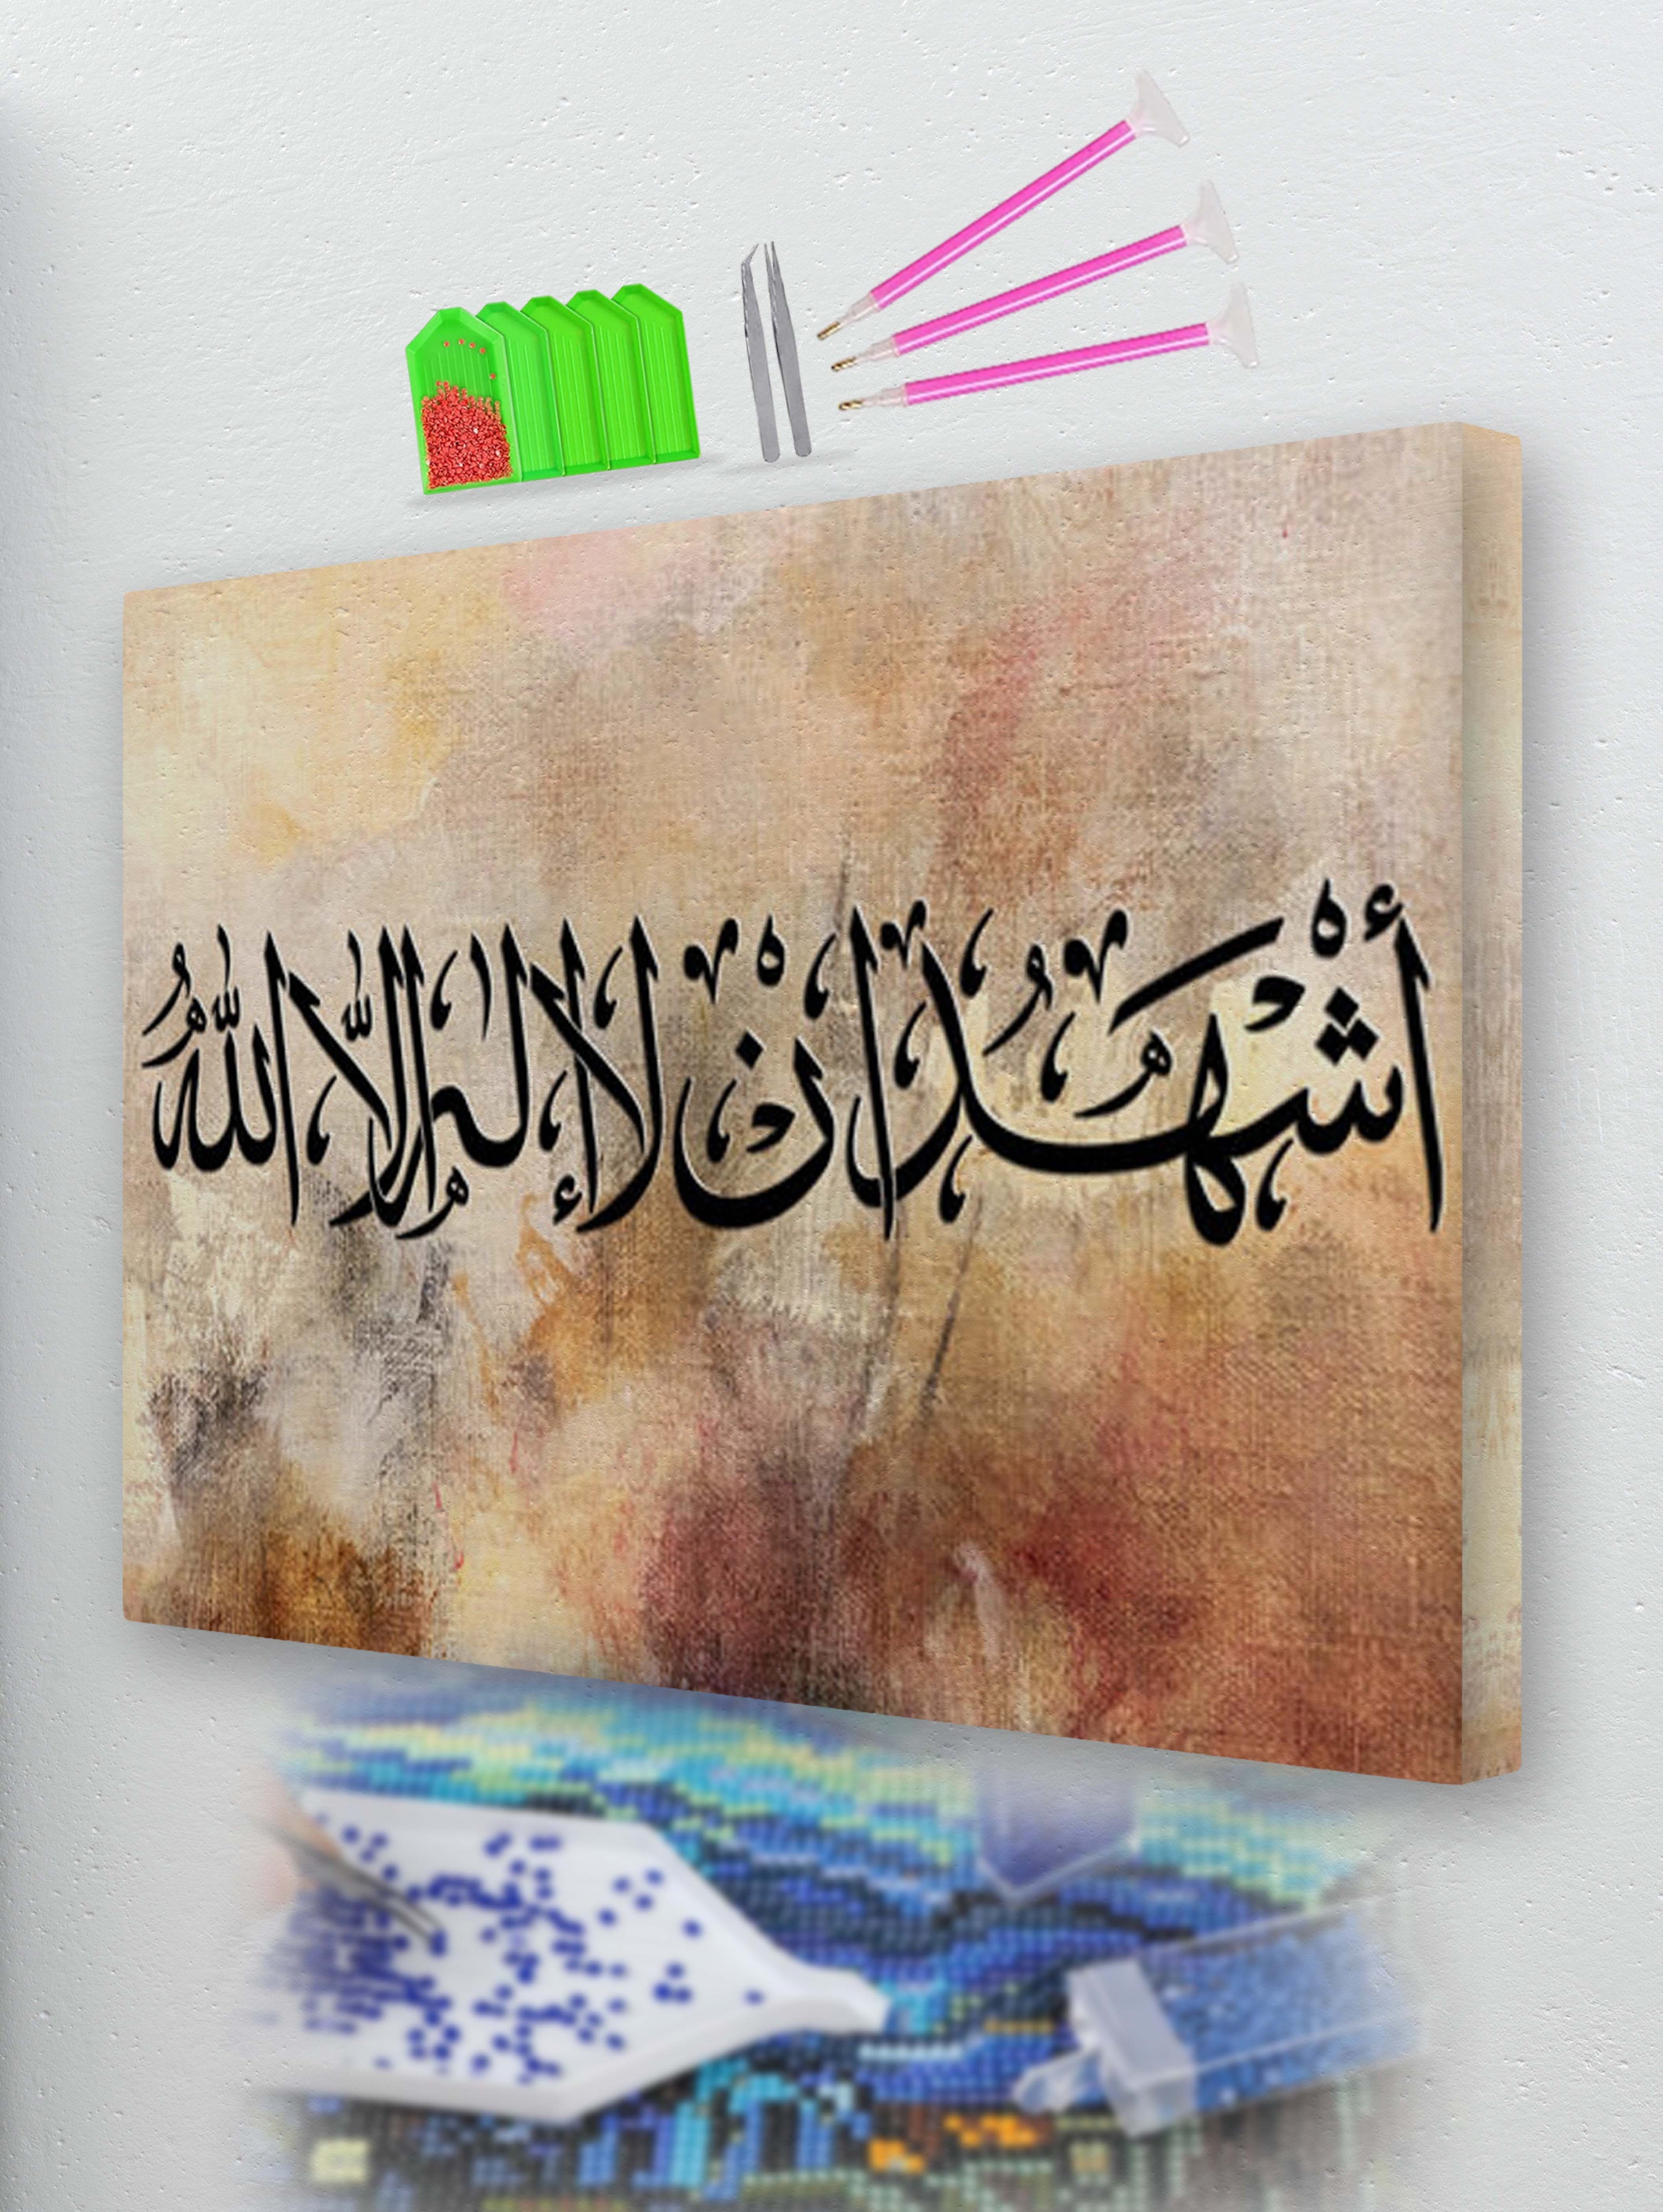 أشهد ان لا إله إلا الله